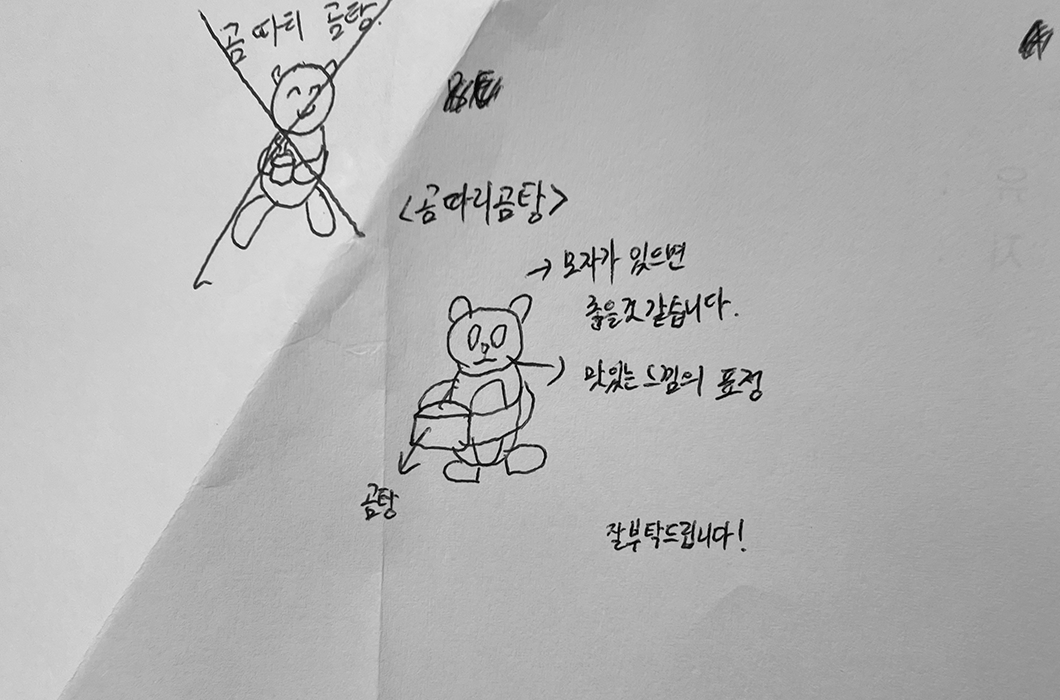 곰따리 곰탕.
<곰따리곰탕>
→ 모자가 있으면
좋을것 같습니다.
맛있는 느낌의 표정
곰탕
잘부탁드립니다!